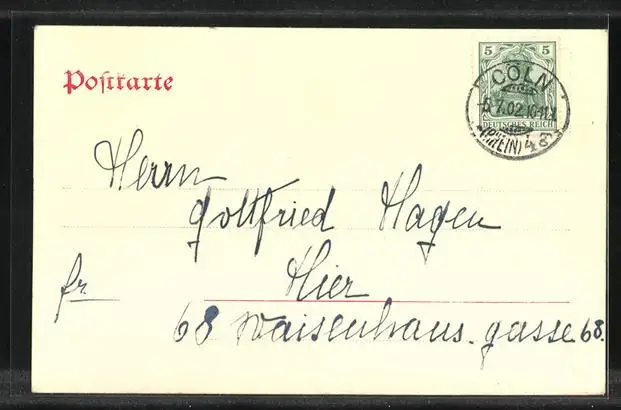 Postkarte
5 5
DEUTSCHES REICH
CÖLN
7.02.10-11
(RHEIN) 4
Herrn
Gottfried Hagen
fr. Hier
68 Waisenhaus.gasse 68.